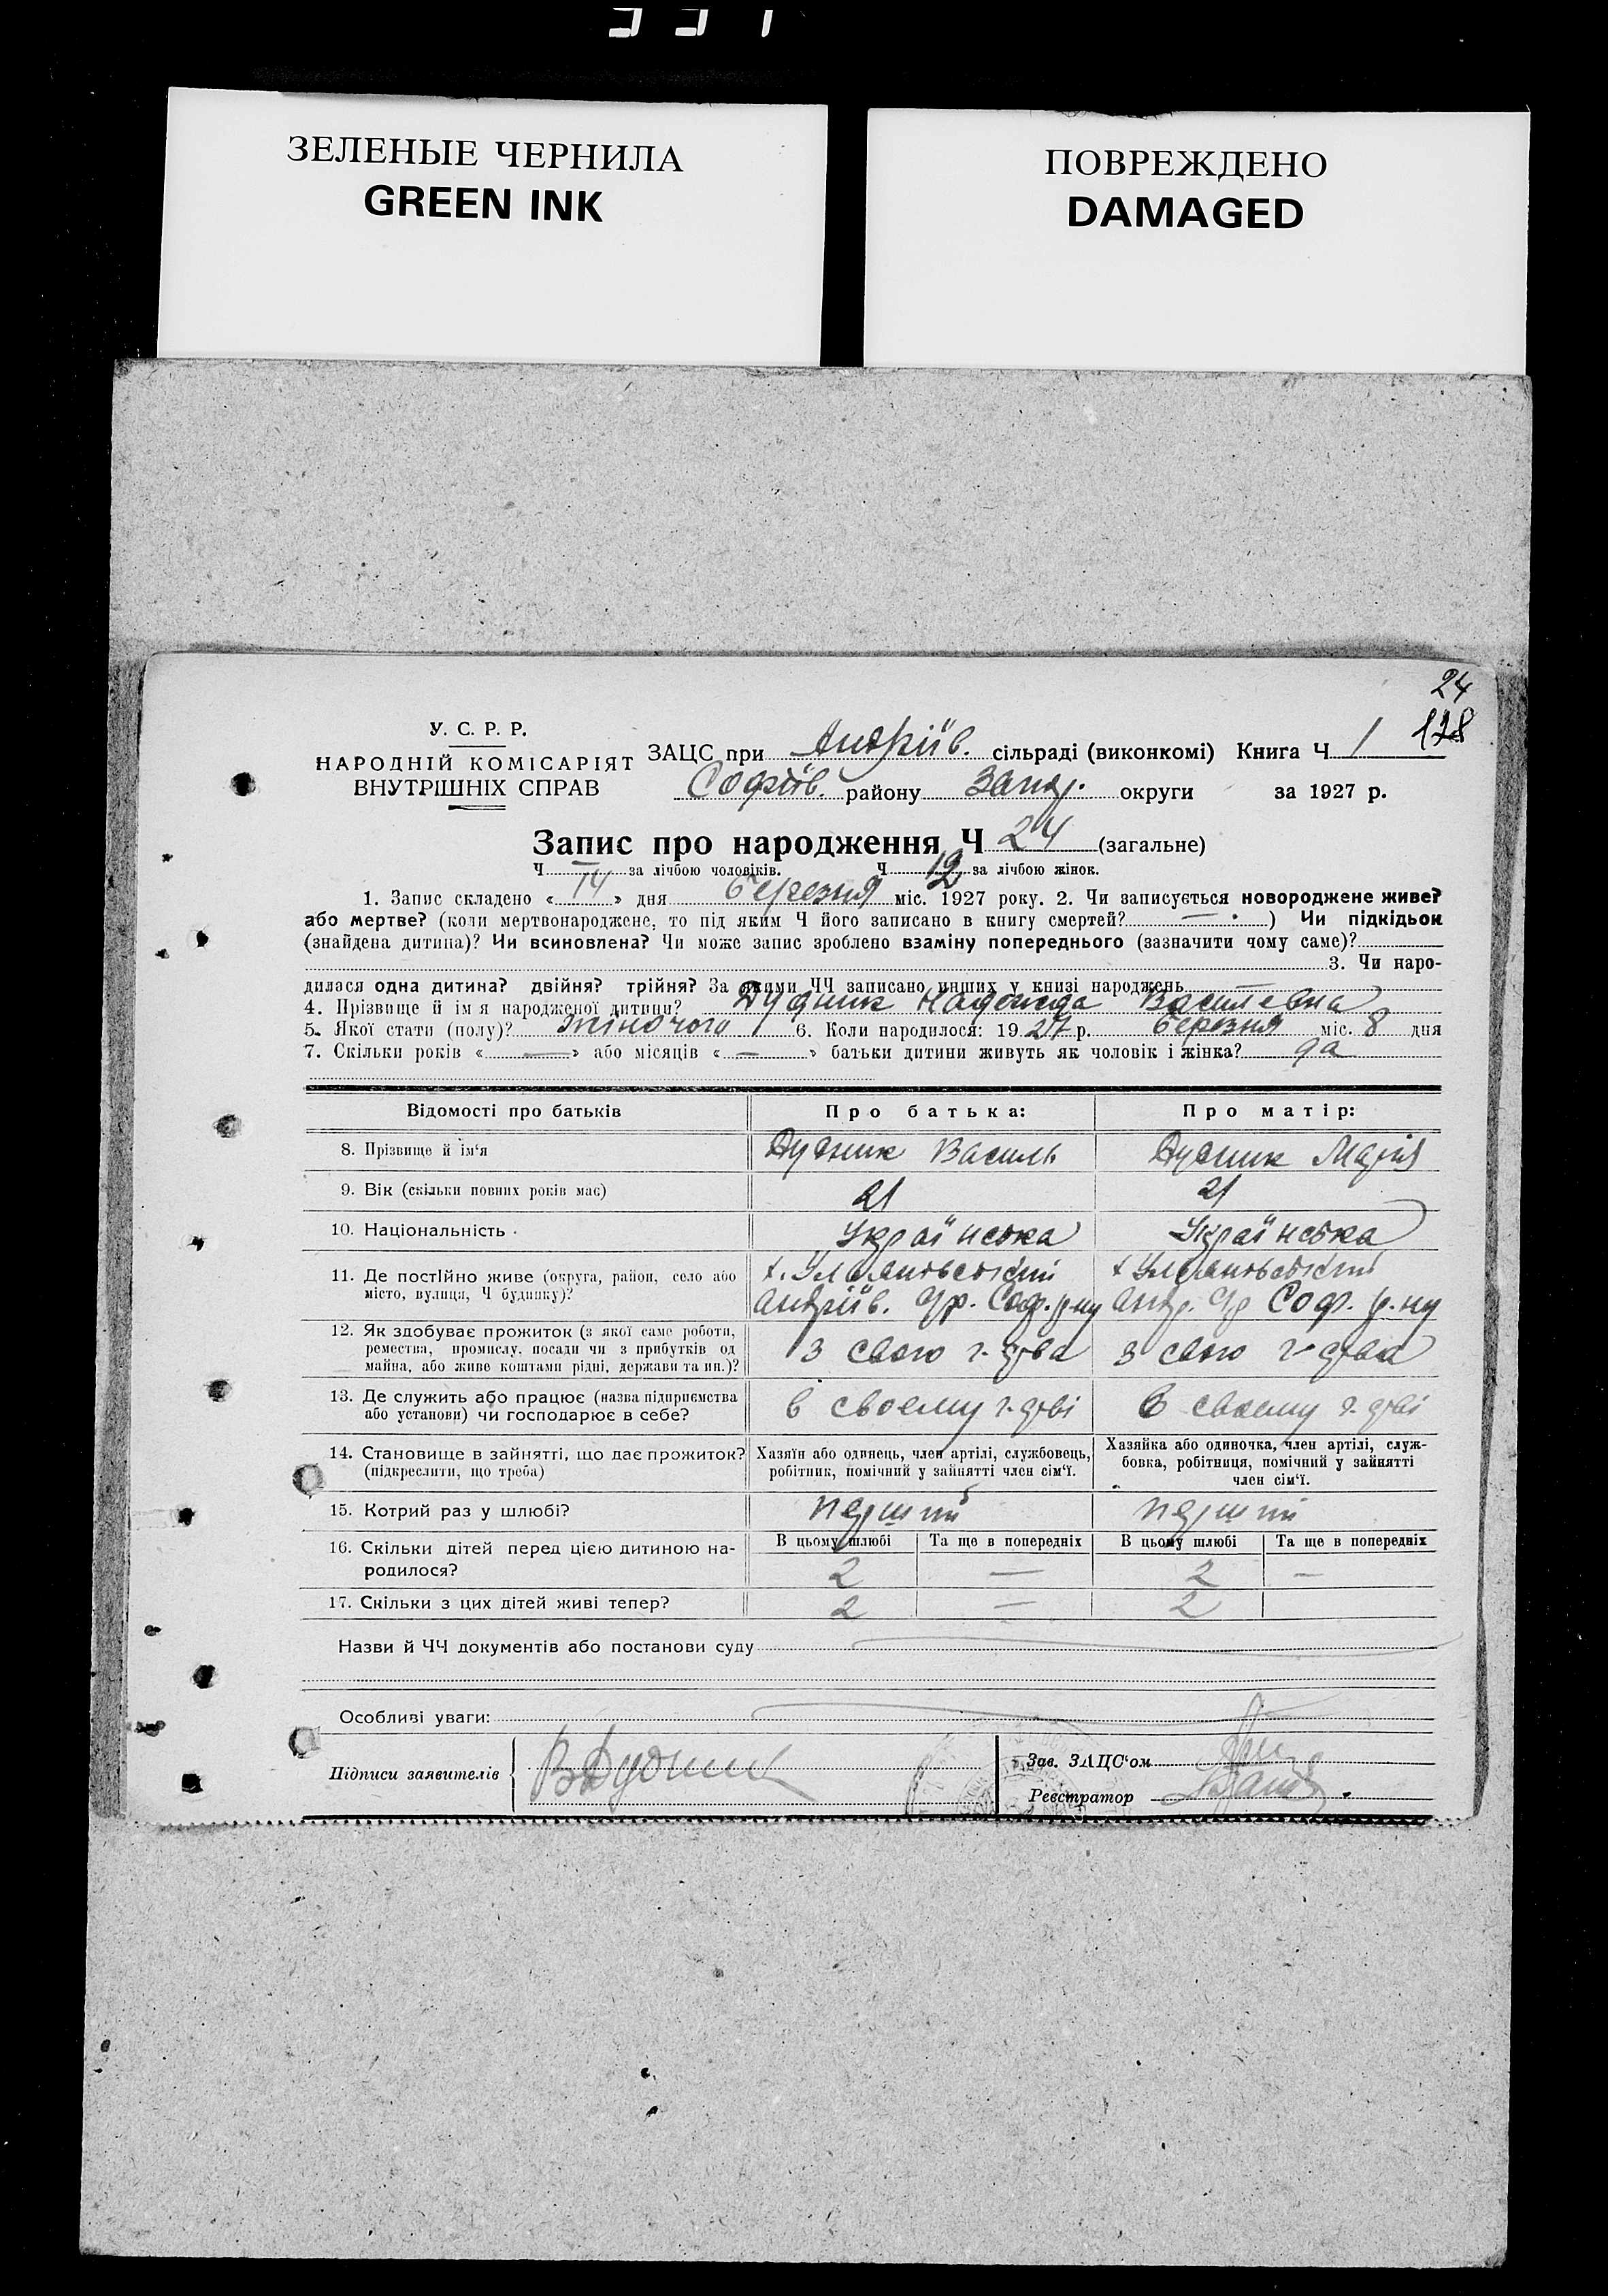 ЗЕЛЕНЫЕ ЧЕРНИЛА
GREEN INK
ПОВРЕЖДЕНО
DAMAGED
24
128
У. С. Р. Р.
НАРОДНІЙ КОМІСАРІЯТ
ВНУТРІШНІХ СПРАВ
ЗАЦС при Андріїв. сільраді (виконкомі) Книга Ч 1
Софіїв. району Запор. округи за 1927 р.
Запис про народження Ч 24 (загальне)
Ч за лічбою чоловіків. Ч 12 за лічбою жінок.
1. Запис складено « 14 » дня березня міс. 1927 року. 2. Чи записується новороджене живе?
або мертве? (коли мертвонароджене, то під яким Ч його записано в книгу смертей? — ) Чи підкідьок
(знайдена дитина)? Чи всиновлена? Чи може запис зроблено взаміну попереднього (зазначити чому саме)?
3. Чи наро-
дилася одна дитина? двійня? трійня? За якими ЧЧ записано инших у книзі народжень
4. Прізвище й ім'я народженої дитини? Дудник Надежда Василевна
5. Якої стати (полу)? жіночого 6. Коли народилося: 1927 р. березня міс. 8 дня
7. Скільки років « — » або місяців « — » батьки дитини живуть як чоловік і жінка? да
Відомості про батьків Про батька: Про матір:
8. Прізвище й ім'я Дудник Василь Дудник Марія
9. Вік (скільки повних років має) 21 21
10. Національність Українська Українська
11. Де постійно живе (округа, район, село або
місто, вулиця, Ч будинку)?
х. Улляновський х Улляновський
Андріїв. с/р. Соф. р-ну Андр. с/р Соф. р-ну
12. Як здобуває прожиток (з якої саме роботи,
ремества, промислу, посади чи з прибутків од
майна, або живе коштами рідні, держави та ин.)?
з свого г-дтва з свого г-дтва
13. Де служить або працює (назва підприємства
або установи) чи господарює в себе?
в своему г-дтві в своему г-дтві
14. Становище в зайнятті, що дає прожиток?
(підкреслити, що треба)
Хазяїн або одинець, член артілі, службовець,
робітник, помічний у зайнятті член сім'ї.
Хазяйка або одиночка, член артілі, служ-
бовка, робітниця, помічний у зайнятті
член сім'ї.
15. Котрий раз у шлюбі? перший перший
16. Скільки дітей перед цією дитиною на-
родилося?
В цьому шлюбі Та ще в попередніх В цьому шлюбі Та ще в попередніх
2 — 2 —
17. Скільки з цих дітей живі тепер? 2 — 2
Назви й ЧЧ документів або постанови суду
Особливі уваги:
Підписи заявителів ВДудник
Зав. ЗАЦС'ом
Реєстратор